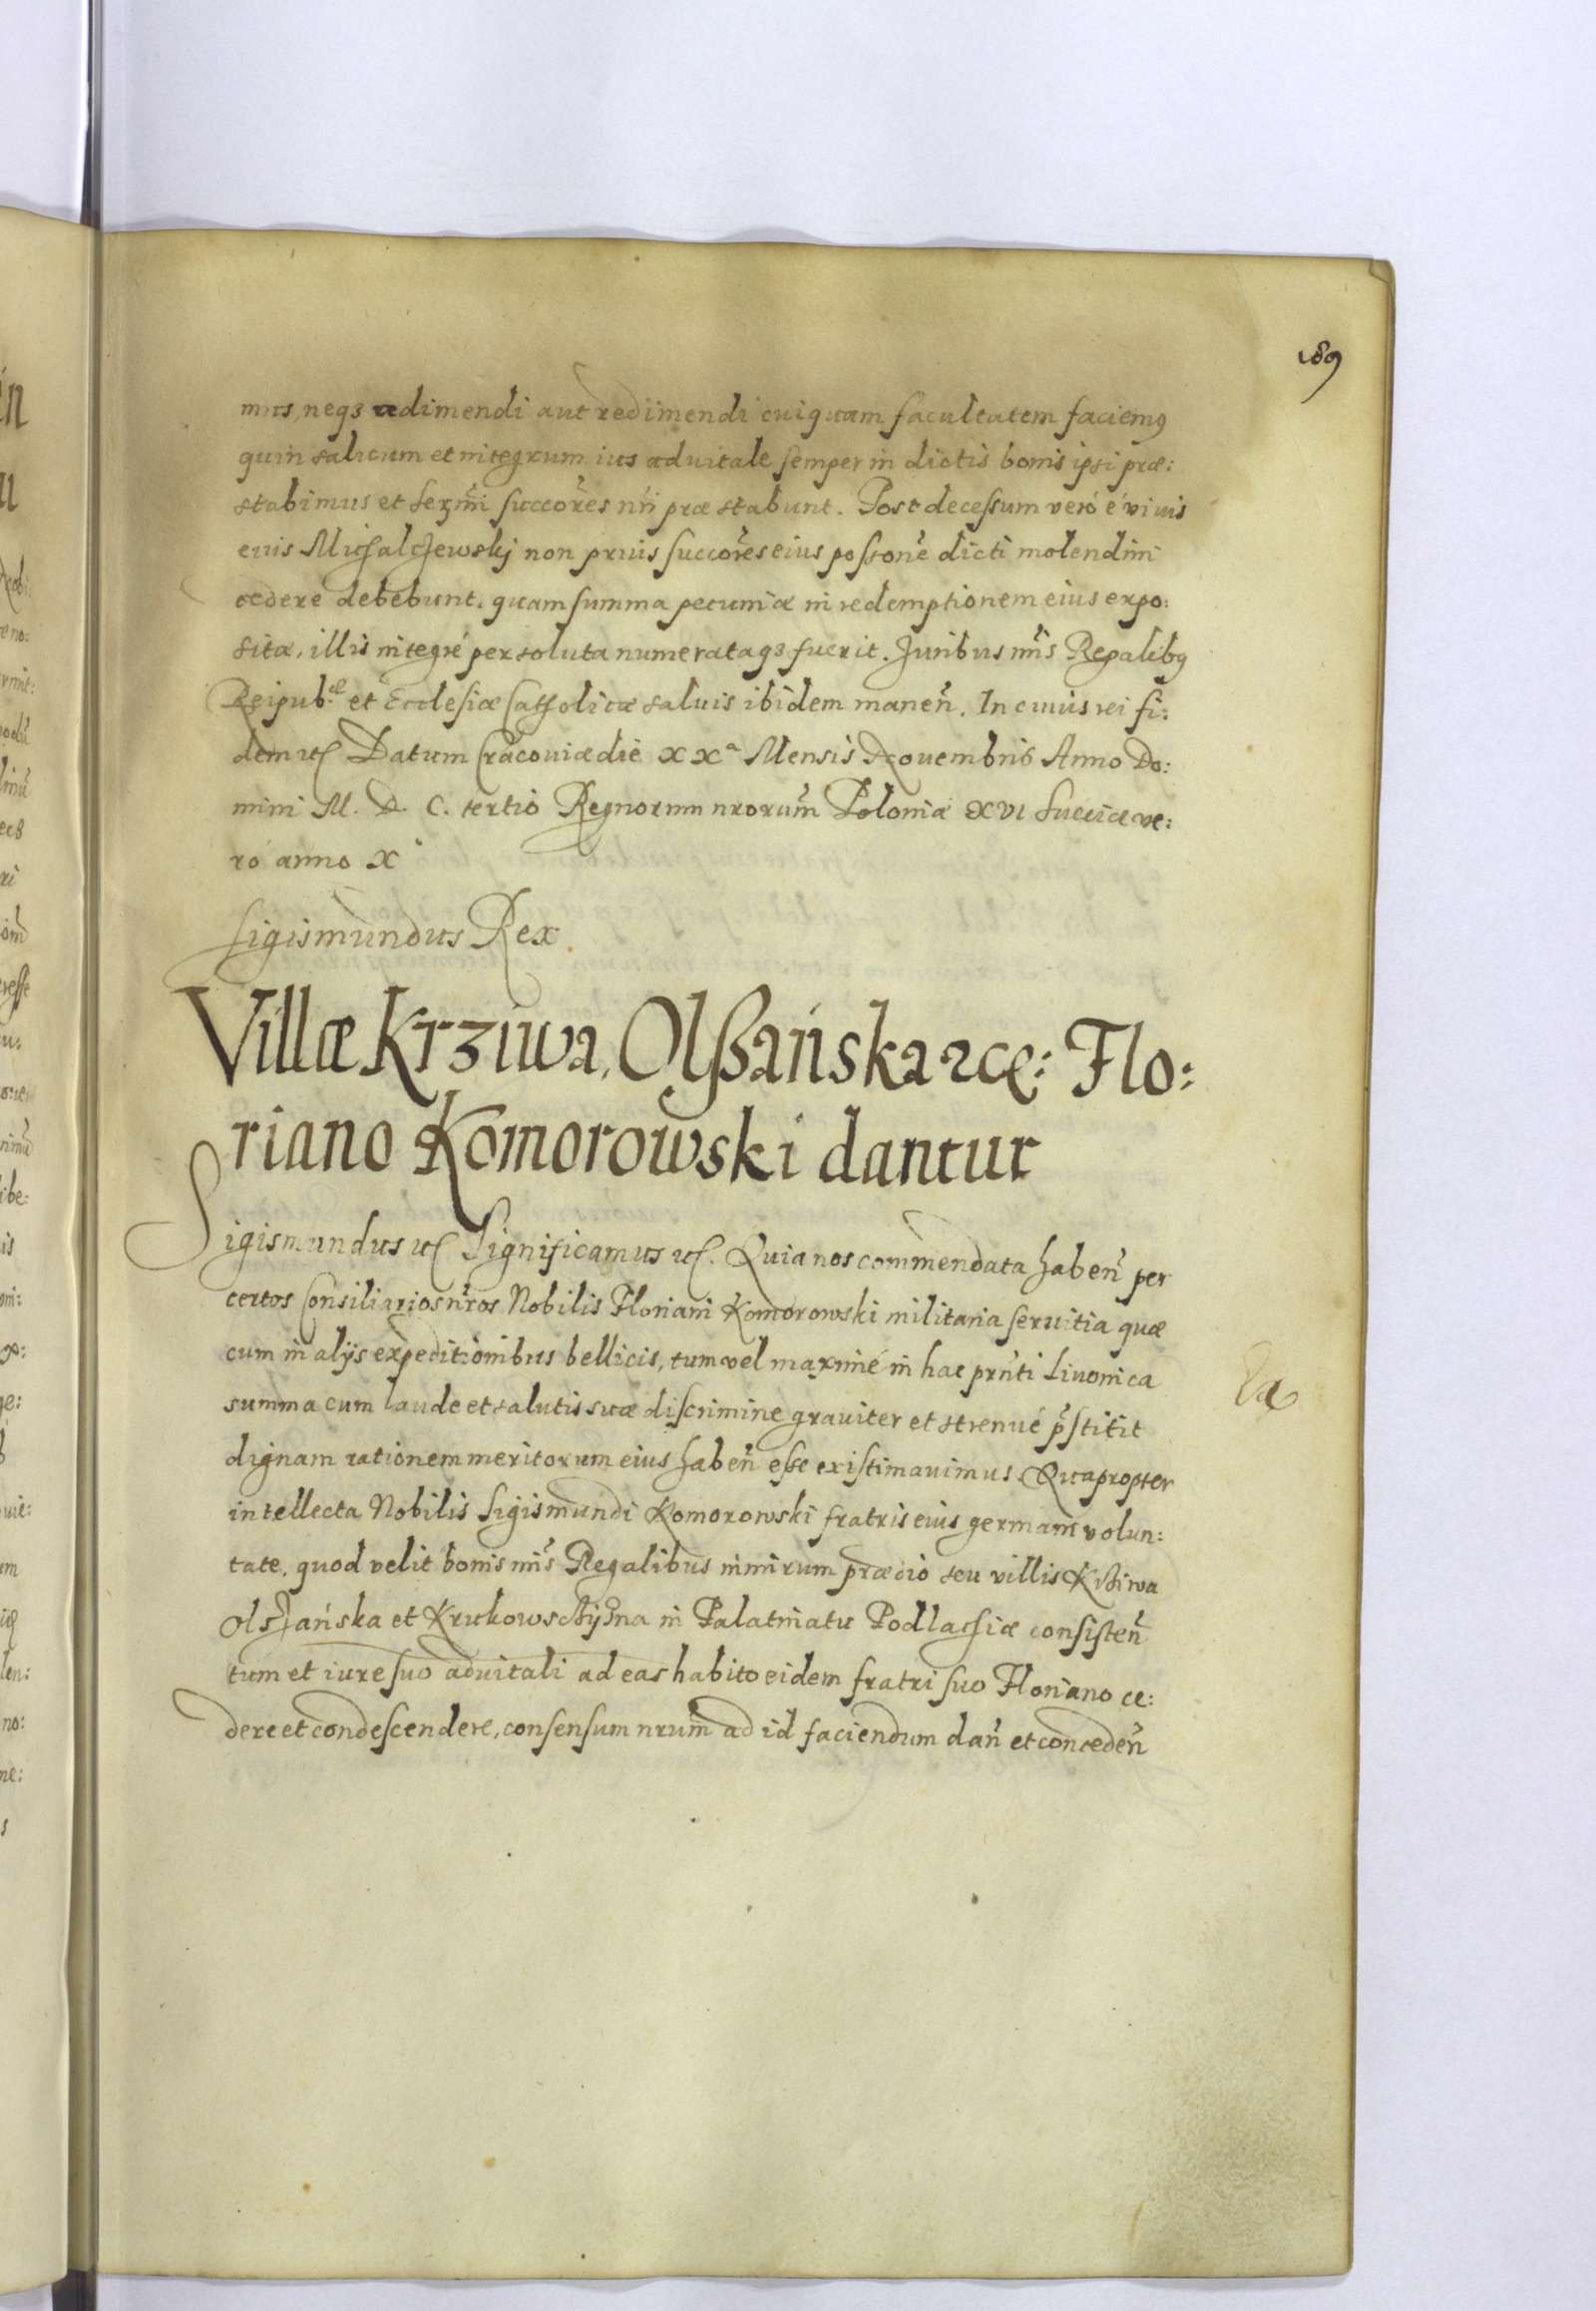 189
mus, neqȝ redimendi aut redimendi cuiquam facultatem faciemꝰ
quin salvum et integrum ius aduitale semper in dictis bonis ipsi præ:
stabimus et Serm̃i succor̃es nr̃i præstabunt. Post decessum veró é viuis
eius Michalczewskj non prius succor̃es eius possonẽ dicti molendini
cedere debebunt, quam summa pecuniæ in redemptionem eius expo:
sitæ, illis integré persoluta numerataqȝ fuerit. Juribus nr̃is Regalibꝰ
Reipub.æ et Ecclesiæ Catholicæ saluis ibidem maneñ. In cuius rei fi:
dem ꝛc Datum Cracouiæ die XXa Mensis Nouembris Anno Do:
mini M. D. C. tertio Regnorum nrorum̃ Poloniæ XVI Sueciæ ve:
ró anno X°
Sigismundus Rex
Villæ Krziwa, Olßańska ꝛcę: Flo:
riano Komorowski dantur
Sigismundus ꝛc Significamus ꝛc. Quia nos commendata habeñ per
certos Consiliarios nr̃os Nobilis Floriani Komorowski militaria seruitia quæ
cum in alijs expeditionibus bellicis, tum vel maximé in hac prñti Liuonica
summa cum laude et salutis suæ discrimine grauiter et strenué p̃stitit
dignam rationem meritorum eius habeñ esse existimauimus. Quapropter
intellecta Nobilis Sigismundi Komorowski fratris eius germani volun:
tate, quod velit bonis nr̃is Regalibus nimirum prædio seu villis
et in Palatinatu Podlachiæ consisteñ
tum et iure suo aduitali ad eas habito eidem fratri suo Floriano ce:
dere et condescendere, consensum nrum̃ ad id faciendum dañ et concedeñ